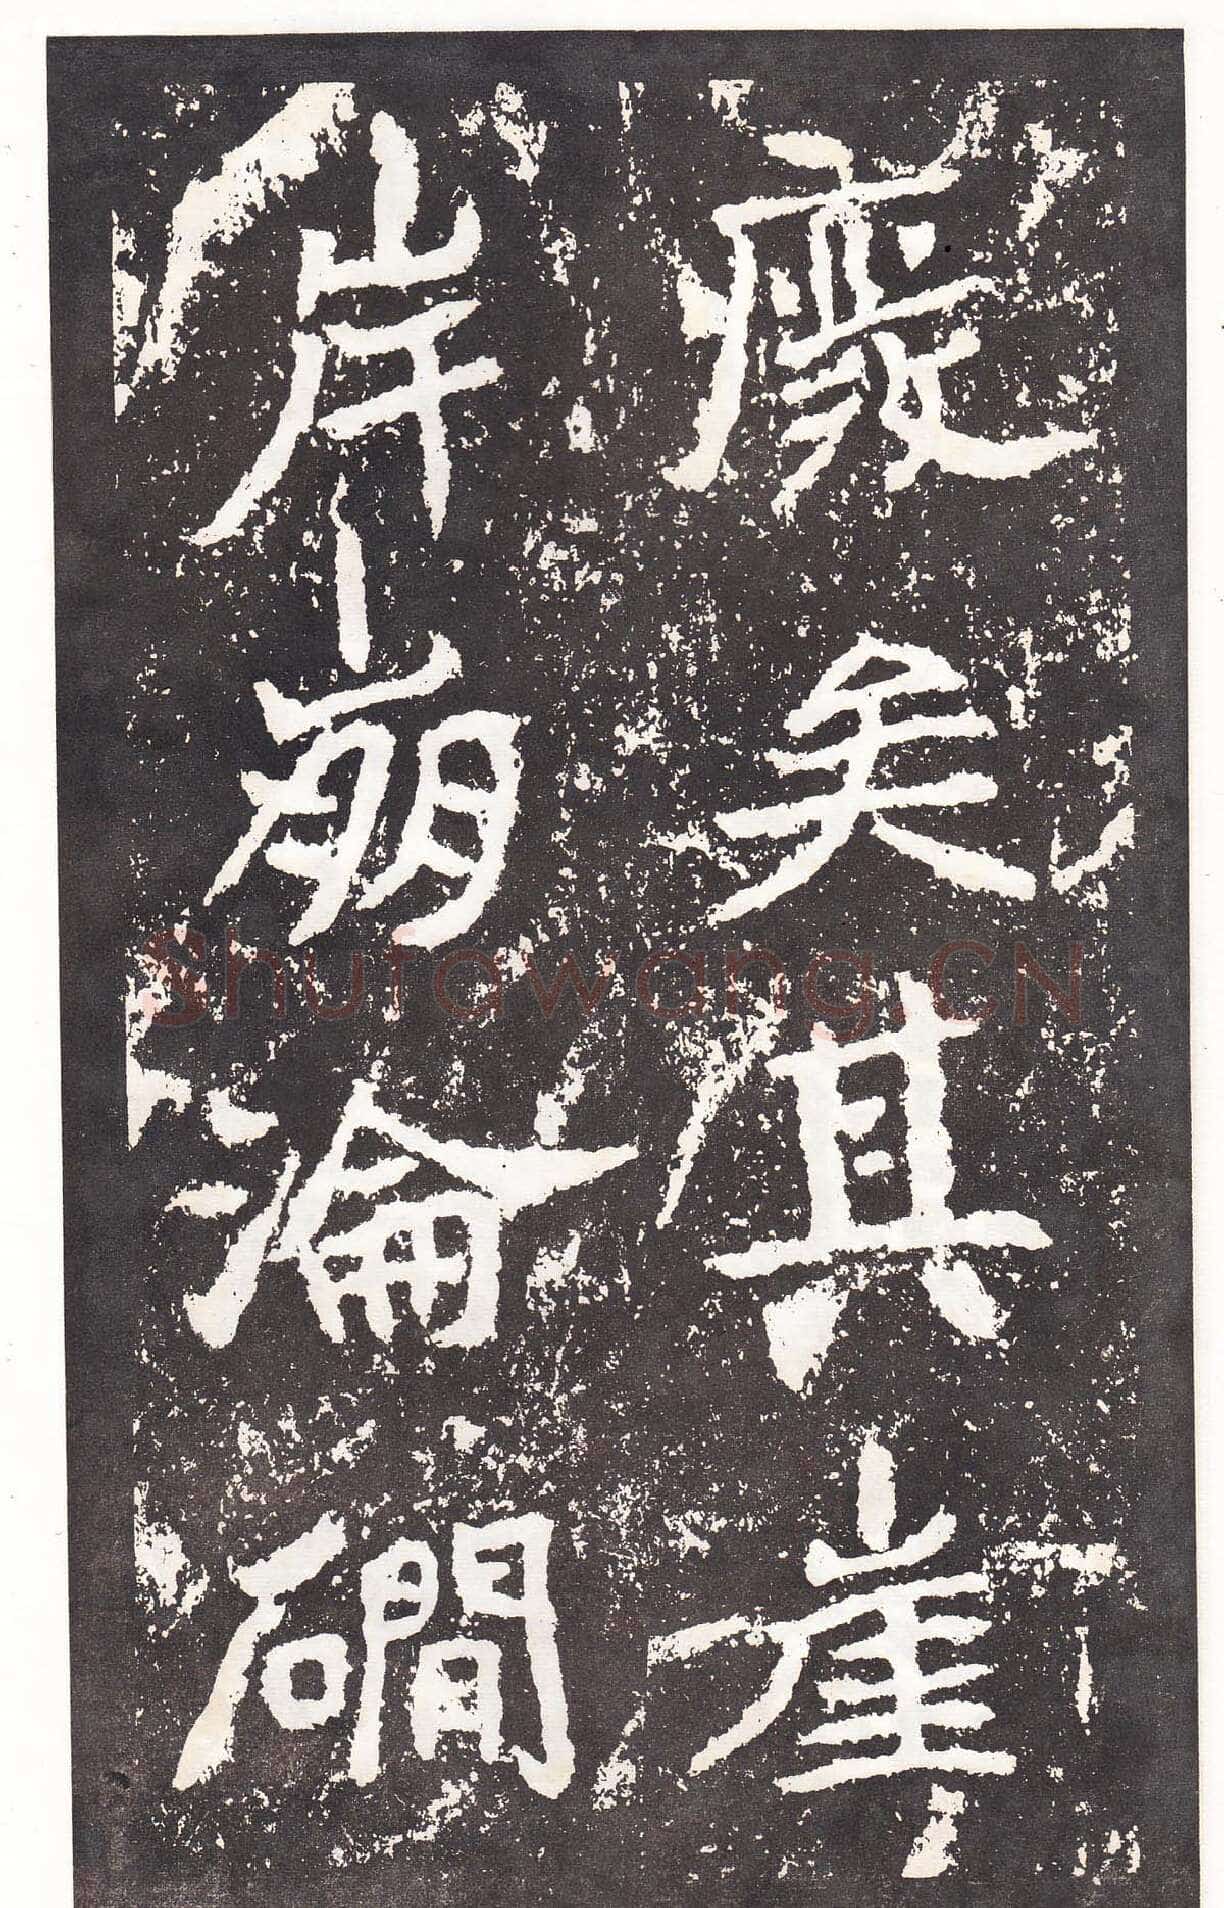 廢矣其崖
岸崩淪磵
Shufawang.CN